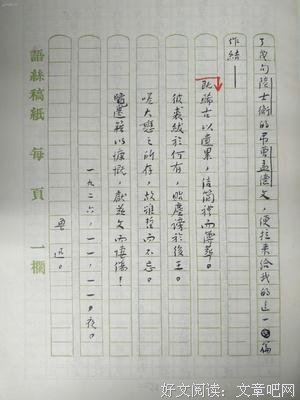 了幾句陸士衡的吊曹孟德文，便拉来給我的這一篇
作結——
既睎古以遺累，信簡禮而薄葬。
彼裘紱於何有，貽塵謗於後王。
嗟大戀之所存，故雖哲而不忘。
覽遺籍以慷慨，獻茲文而悽傷！
一九二六，一一，一一。夜。
魯迅。
語絲稿紙 每頁 一欄
好文阅读：文章吧网